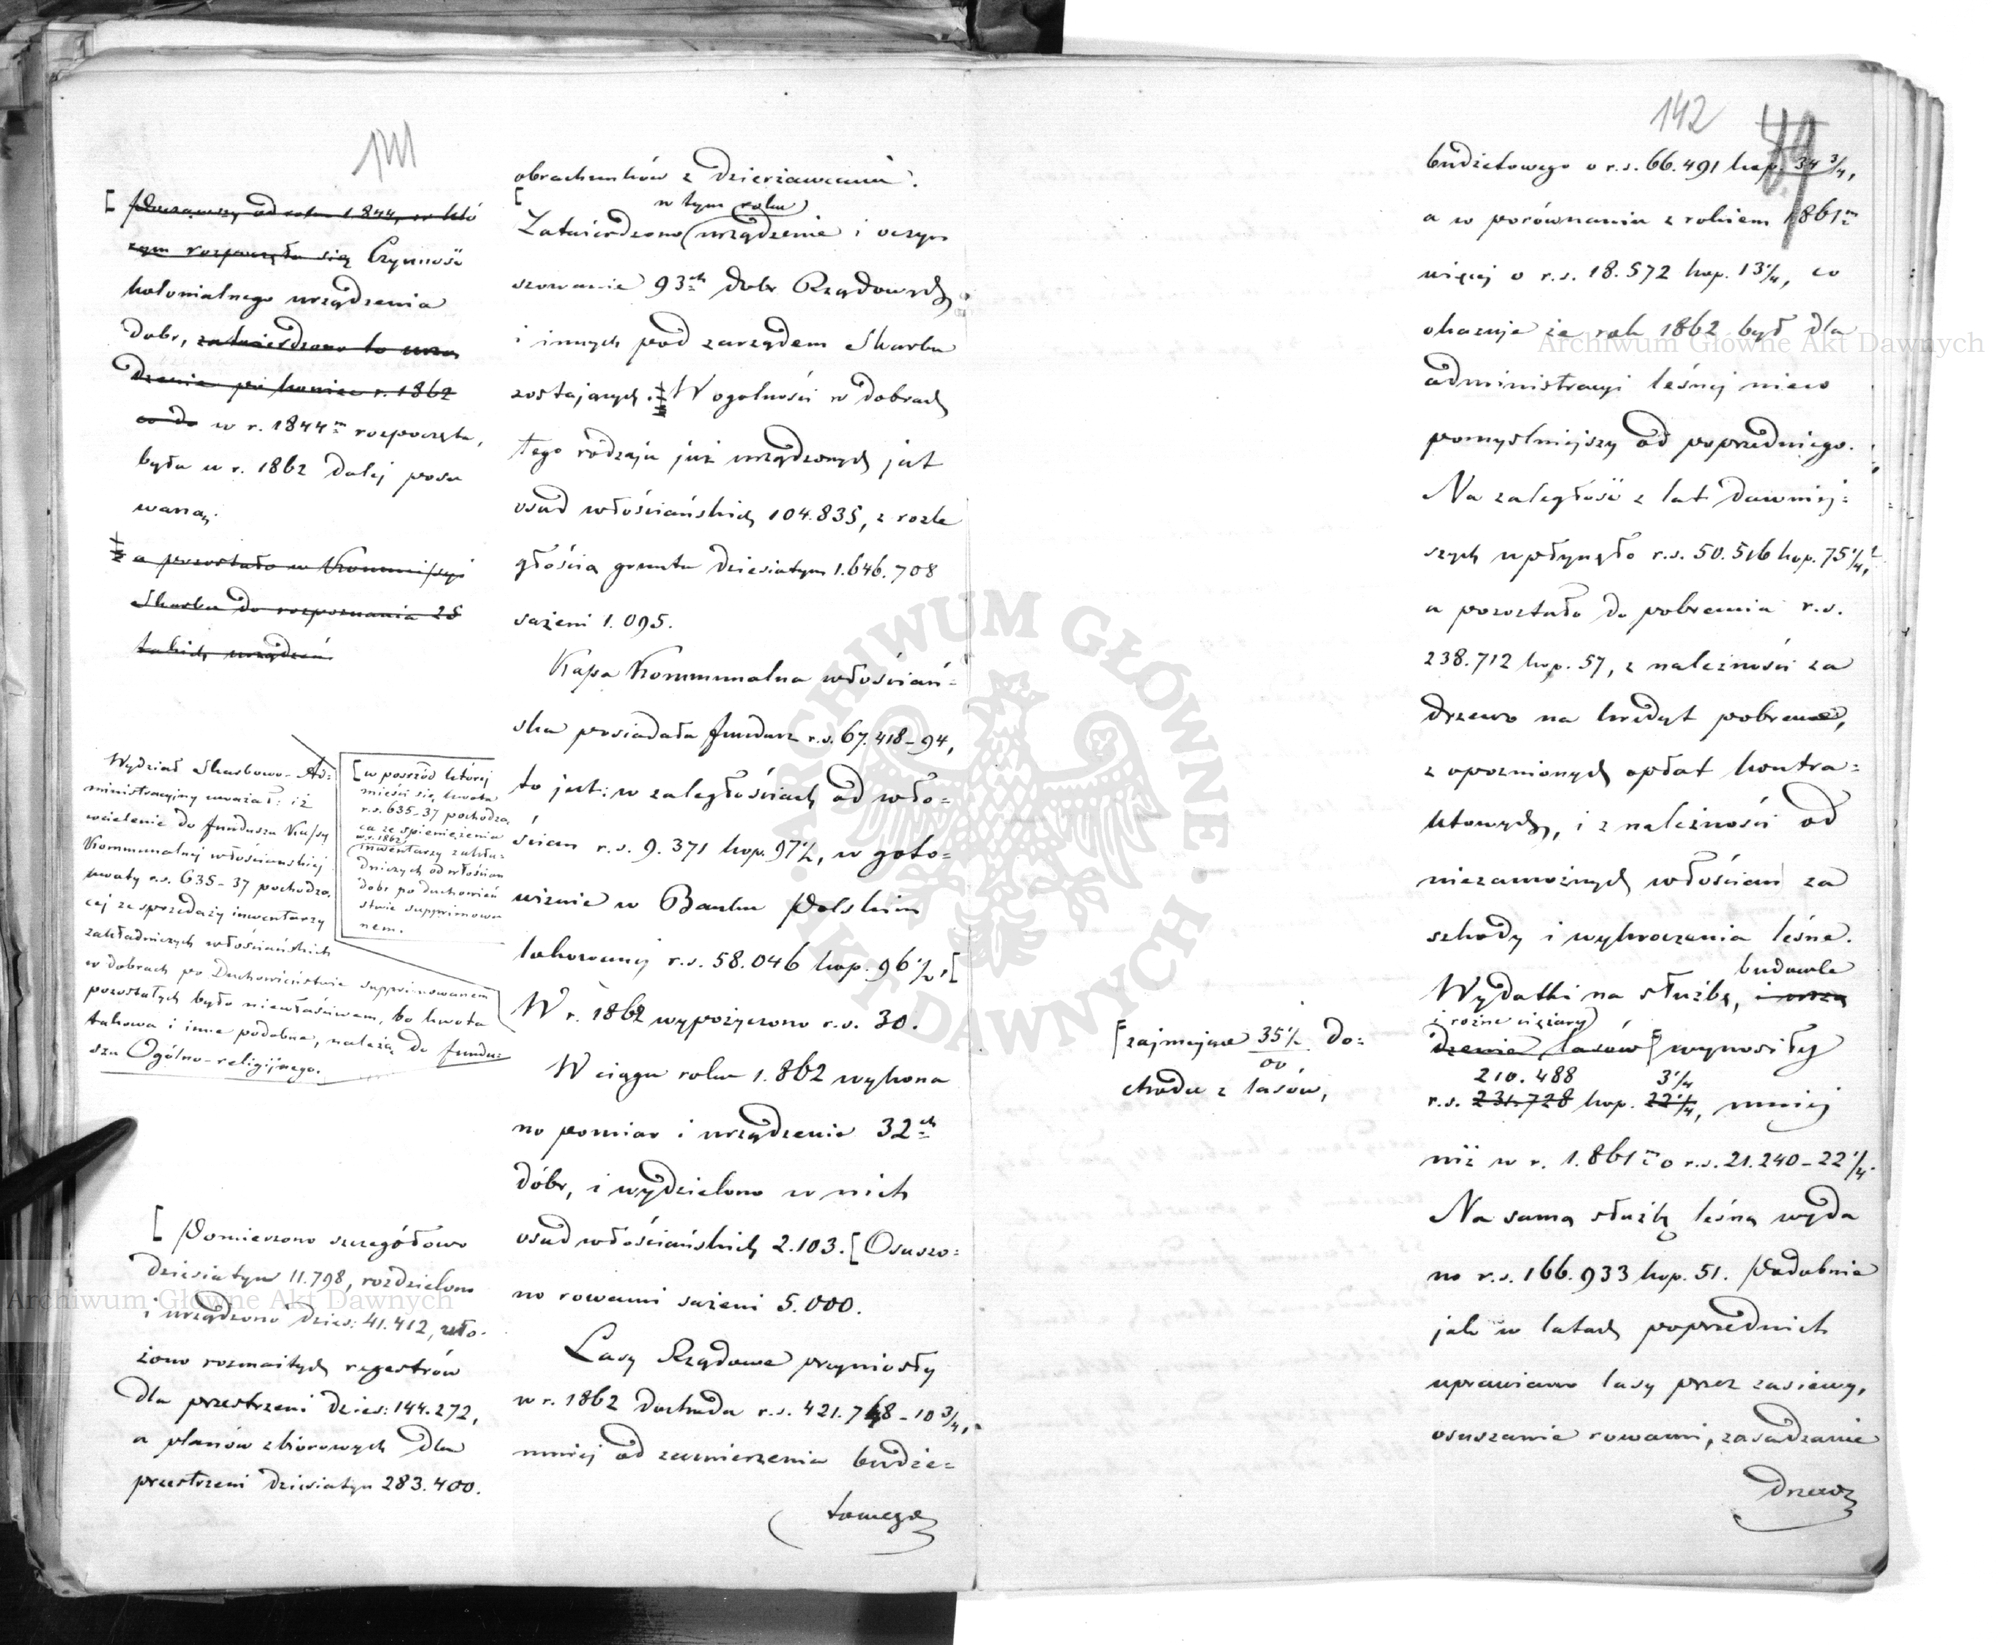 141
[ Począwszy od roku 1844, w któ
rym rozpoczęła się Czynność
kolonialnego urządzenia
dobr, zatwierdzono to urzą
dzenie po koniec r. 1862
co do w r. 1844m rozpoczęta,
była w r. 1862 dalej posu
waną.
a pozostało w Kommissyi
Skarbu do rozpoznania 25
takich urządzeń
Wydział Skarbowo-Ad=
ministracyjny uważał: iż
wcielenie do funduszu Kassy
Kommunalnej włościańskiej
kwoty r.s. 635-37 pochodzą
cej ze sprzedaży inwentarzy
zakładniczych włościańskich
w dobrach po Duchowieństwie suppimowanem
pozostałych było niewłaściwem, bo kwota
takowa i inne podobne, należą do fundu=
szu Ogólno-religijnego.
[ w pośród której
mieści się kwota
r.s. 635-37 pochodzą
ca ze spieniężenia
w r. 1862
inwentarzy zakła=
dniczych od włościan
dobr po duchowień
stwie suppimowa
nem.
[ Pomierzono szczegółowo
dziesiatyn 11.798, rozdzielono
i urządzono dzies: 41.412, uło-
żono rozmaitych regestrów
dla przestrzeni dzies: 144.272,
a planów zbiorowych dla
przestrzeni dziesiatyn 283.400.
obrachunków z dzierżawcami.
[
w tym roku
Zatwierdzono urządzenie i oczyn
szowanie 93ch dobr Rządowych
i innych pod zarządem Skarbu
zostających. W ogolności w dobrach
tego rodzaju już urządzonych jest
osad włościańskich 104.835, z rozle
głością gruntu dziesiatyn 1.646.708
sażeni 1.095.
Kassa Kommunalna włościań=
ska posiadała fundusz r.s. 67.418-94,
to jest: w zaległościach od wło=
ścian r.s. 9.371 kop. 97½, w goto=
wiznie w Banku Polskim
lokowanej r.s. 58.046 kop. 96½, [
W r. 1862 wypożyczono r.s. 30.
W ciągu roku 1.862 wykona
no pomiar i urządzenie 32ch
dóbr, i wydzielono w nich
osad włościańskich 2.103. [ Osuszo=
no rowami sażeni 5.000.
Lasy Rządowe przyniosły
w r. 1862 dochodu r.s. 421.748-10¾,
mniej od zamierzenia budże=
towego
142
49
budżetowego o r.s. 66.491 kop. 34¾,
a w porównaniu z rokiem 1861m
więcej o r.s. 18.572 kop. 13¼, co
okazuje że rok 1862 był dla
administracyi leśnej nieco
pomyślniejszy od poprzedniego.
Na zaległość z lat dawniej=
szych wpłynęło r.s. 50.516 kop. 75¼,
a pozostało do pobrania r.s.
238.712 kop. 57, z należności za
drzewo na kredyt pobrane,
z opoznionych opłat kontra=
ktowych, i z należności od
niezamożnych włościan za
szkody i wykroczenia leśne.
budowle
Wydatki na służbę, i urzą
i rożne ciężary
dzenie lasów [ wynosiły
210.488 3¼
r.s. 231.728 kop. 22¼, mniej
niż w r. 1.861m o r.s. 21.240-22¼.
[ zajmujące 35½ do=
00
chodu z lasów,
Na samą służbę leśną wyda
no r.s. 166.933 kop. 51. Podobnie
jak w latach poprzednich
uprawiano lasy przez zasiewy,
osuszanie rowami, zasadzanie
drzew
Archiwum Główne Akt Dawnych
Archiwum Główne Akt Dawnych
ARCHIWUM GŁÓWNE
AKT DAWNYCH